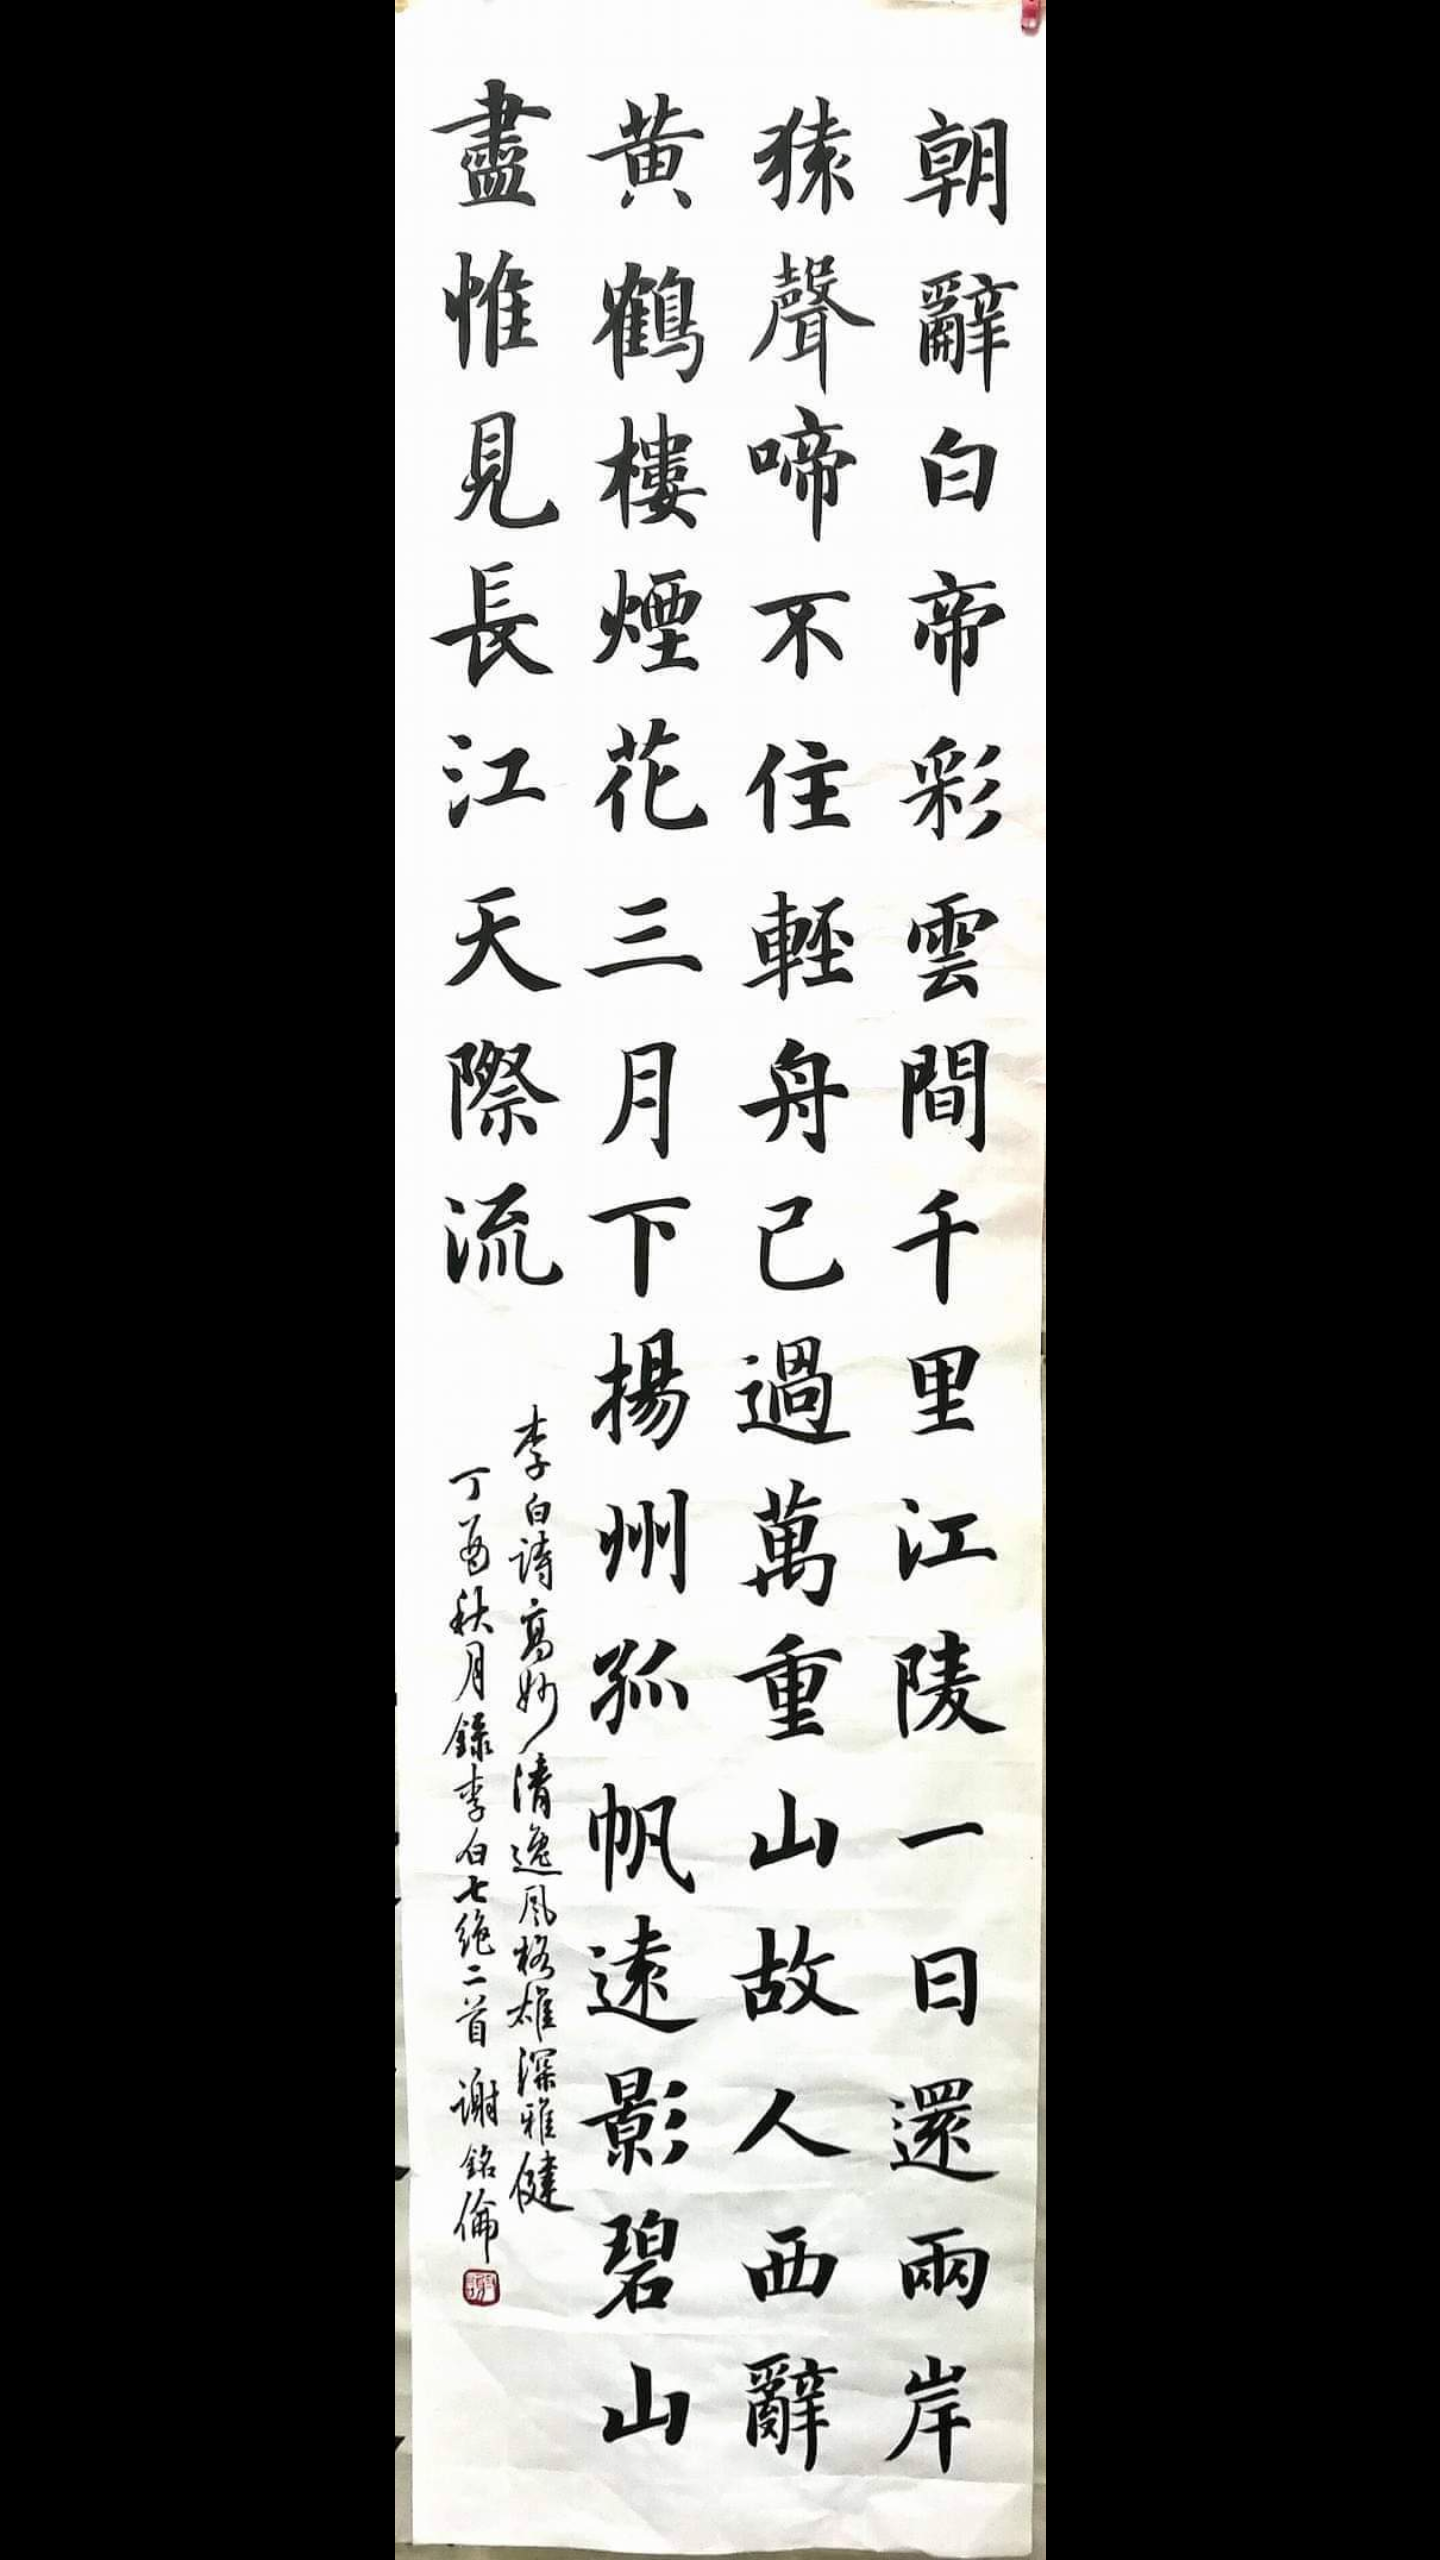 朝辭白帝彩雲間千里江陵一日還兩岸
猿聲啼不住輕舟已過萬重山故人西辭
黄鶴樓煙花三月下揚州孤帆遠影碧山
盡惟見長江天際流
李白诗高妙清逸風格雄深雅健
丁酉秋月録李白七绝二首謝銘倫